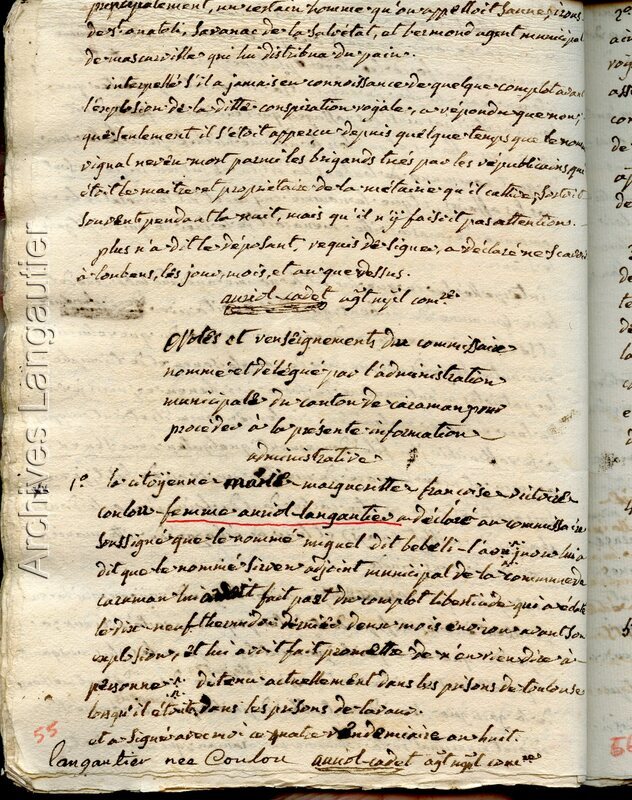 principalement, un certain homme qu'on appelloit
de Savanac de la Salvetat, et bermond agent municipal
de mascarville qui lui distribua du pain.
interpellé s'il a jamais eu connoissance de quelque complot avant
l'explosion de la ditte conspiration royale, a répondu que non;
que seulement il s'étoit apperçu depuis quelque temps que le nommé
vignal neveu mort parmi les brigands tués par les républicains qui
étoit le maitre et propriétaire de la métairie qu'il cultive, sortoit
souvent pendant la nuit, mais qu'il n'y faisoit pas attention.
plus n'a dit le déposant, requis de signer, a déclaré ne scavoir
à loubens, les jour, mois, et an que dessus.
auriol-cadet agt mpl comre
Notes et renseignements du commissaire
nommé et délégué par l'administration
municipale du canton de caraman pour
procéder à la presente information
administrative
1º la citoyenne marie margueritte françoise victoire
coulon femme auriol langautier a déclaré au commissaire
soussigné que le nommé miquel dit bebéli lui a
dit que le nommé Sirven adjoint municipal de la commune de
caraman lui avoit fait part du complot liberticide qui a éclaté
le dix neuf thermidor dernier deux mois environ avant son
explosion, et lui avoit fait promettre de n'en rien dire à
personne détenu actuellement dans les prisons de toulouse
lorsqu'il étoit dans les prisons de lavaur
et a signé avec moi ce quatre vendemiaire an huit.
langautier nee Coulon auriol-cadet agt mpl comre
55
56
Archives Langautier